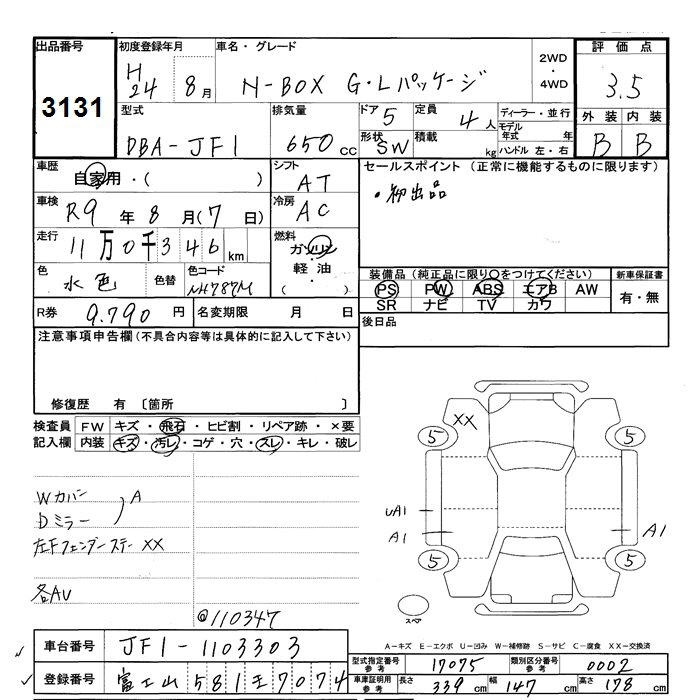 出品番号
3131
初度登録年月
H
24 8月
車名・グレード
N-BOX G・Lパッケージ
2WD
・
4WD
評価点
3.5
型式
DBA-JF1
排気量
650cc
ドア 5
定員 4人
形状 SW
積載 kg
ディーラー・並行
モデル年式 年
ハンドル 左・右
外装 内装
B B
車歴
自家用・( )
シフト
AT
セールスポイント (正常に機能するものに限ります)
・初出品
車検
R9年8月(7日)
冷房
AC
走行
11万0千346km
燃料
ガソリン
・
軽油
( )
色
水色
色替
色コード
NH787M
装備品(純正品に限り○をつけてください)
PS PW ABS エアB AW
SR ナビ TV カワ
新車保証書
有・無
R券 9.790円
名変期限 月 日
後日品
注意事項申告欄(不具合内容等は具体的に記入して下さい)
修復歴 有 〔箇所 〕
検査員
記入欄
FW キズ・飛石・ヒビ割・リペア跡・×要
内装 キズ・汚レ・コゲ・穴・スレ・キレ・破レ
Wカバー
Dミラー
A
左Fフェンダーステー XX
各AU
@110347
XX
5 5
UA1
A1 A1
5 5
スペア
A-キズ E-エクボ U-凹み W-補修跡 S-サビ C-腐食 XX-交換済
車台番号 JF1-1103303
登録番号 富士山 581 7074
型式指定番号
参考
17075
類別区分番号
参考
0002
車庫証明用
参考
長さ 339cm 幅 147cm 高さ 178cm